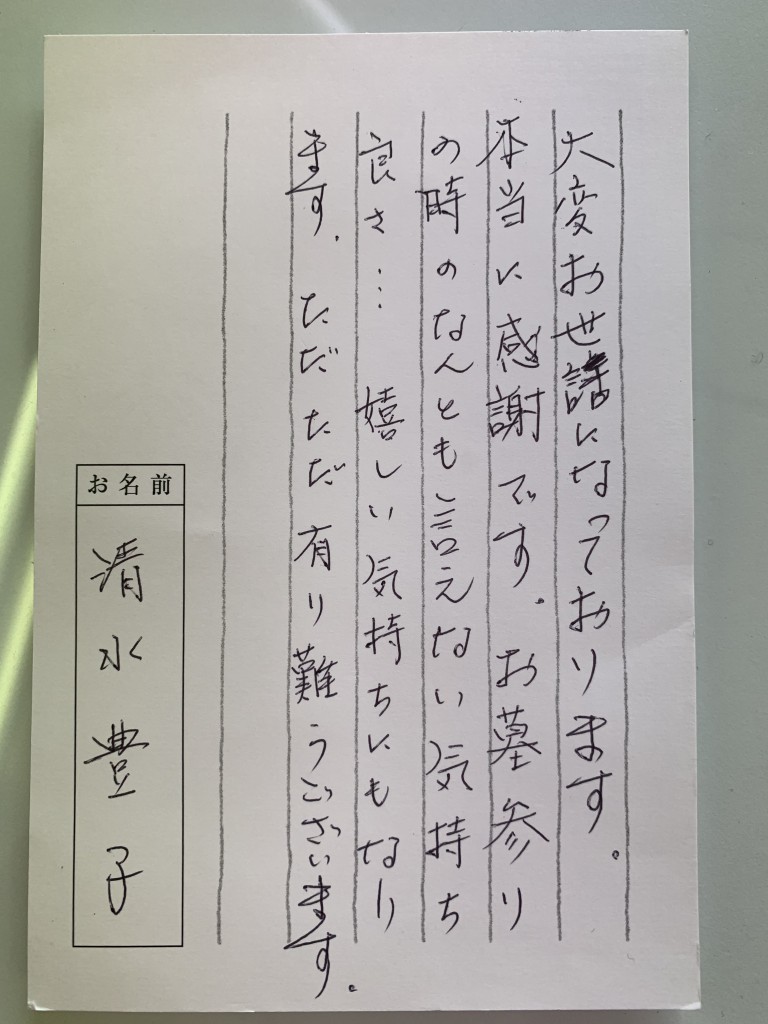 大変お世話になっております。
本当に感謝です。お墓参り
の時のなんとも言えない気持ち
良さ… 嬉しい気持ちにもなり
ます。ただただ有り難うございます。
お名前
清水豊子